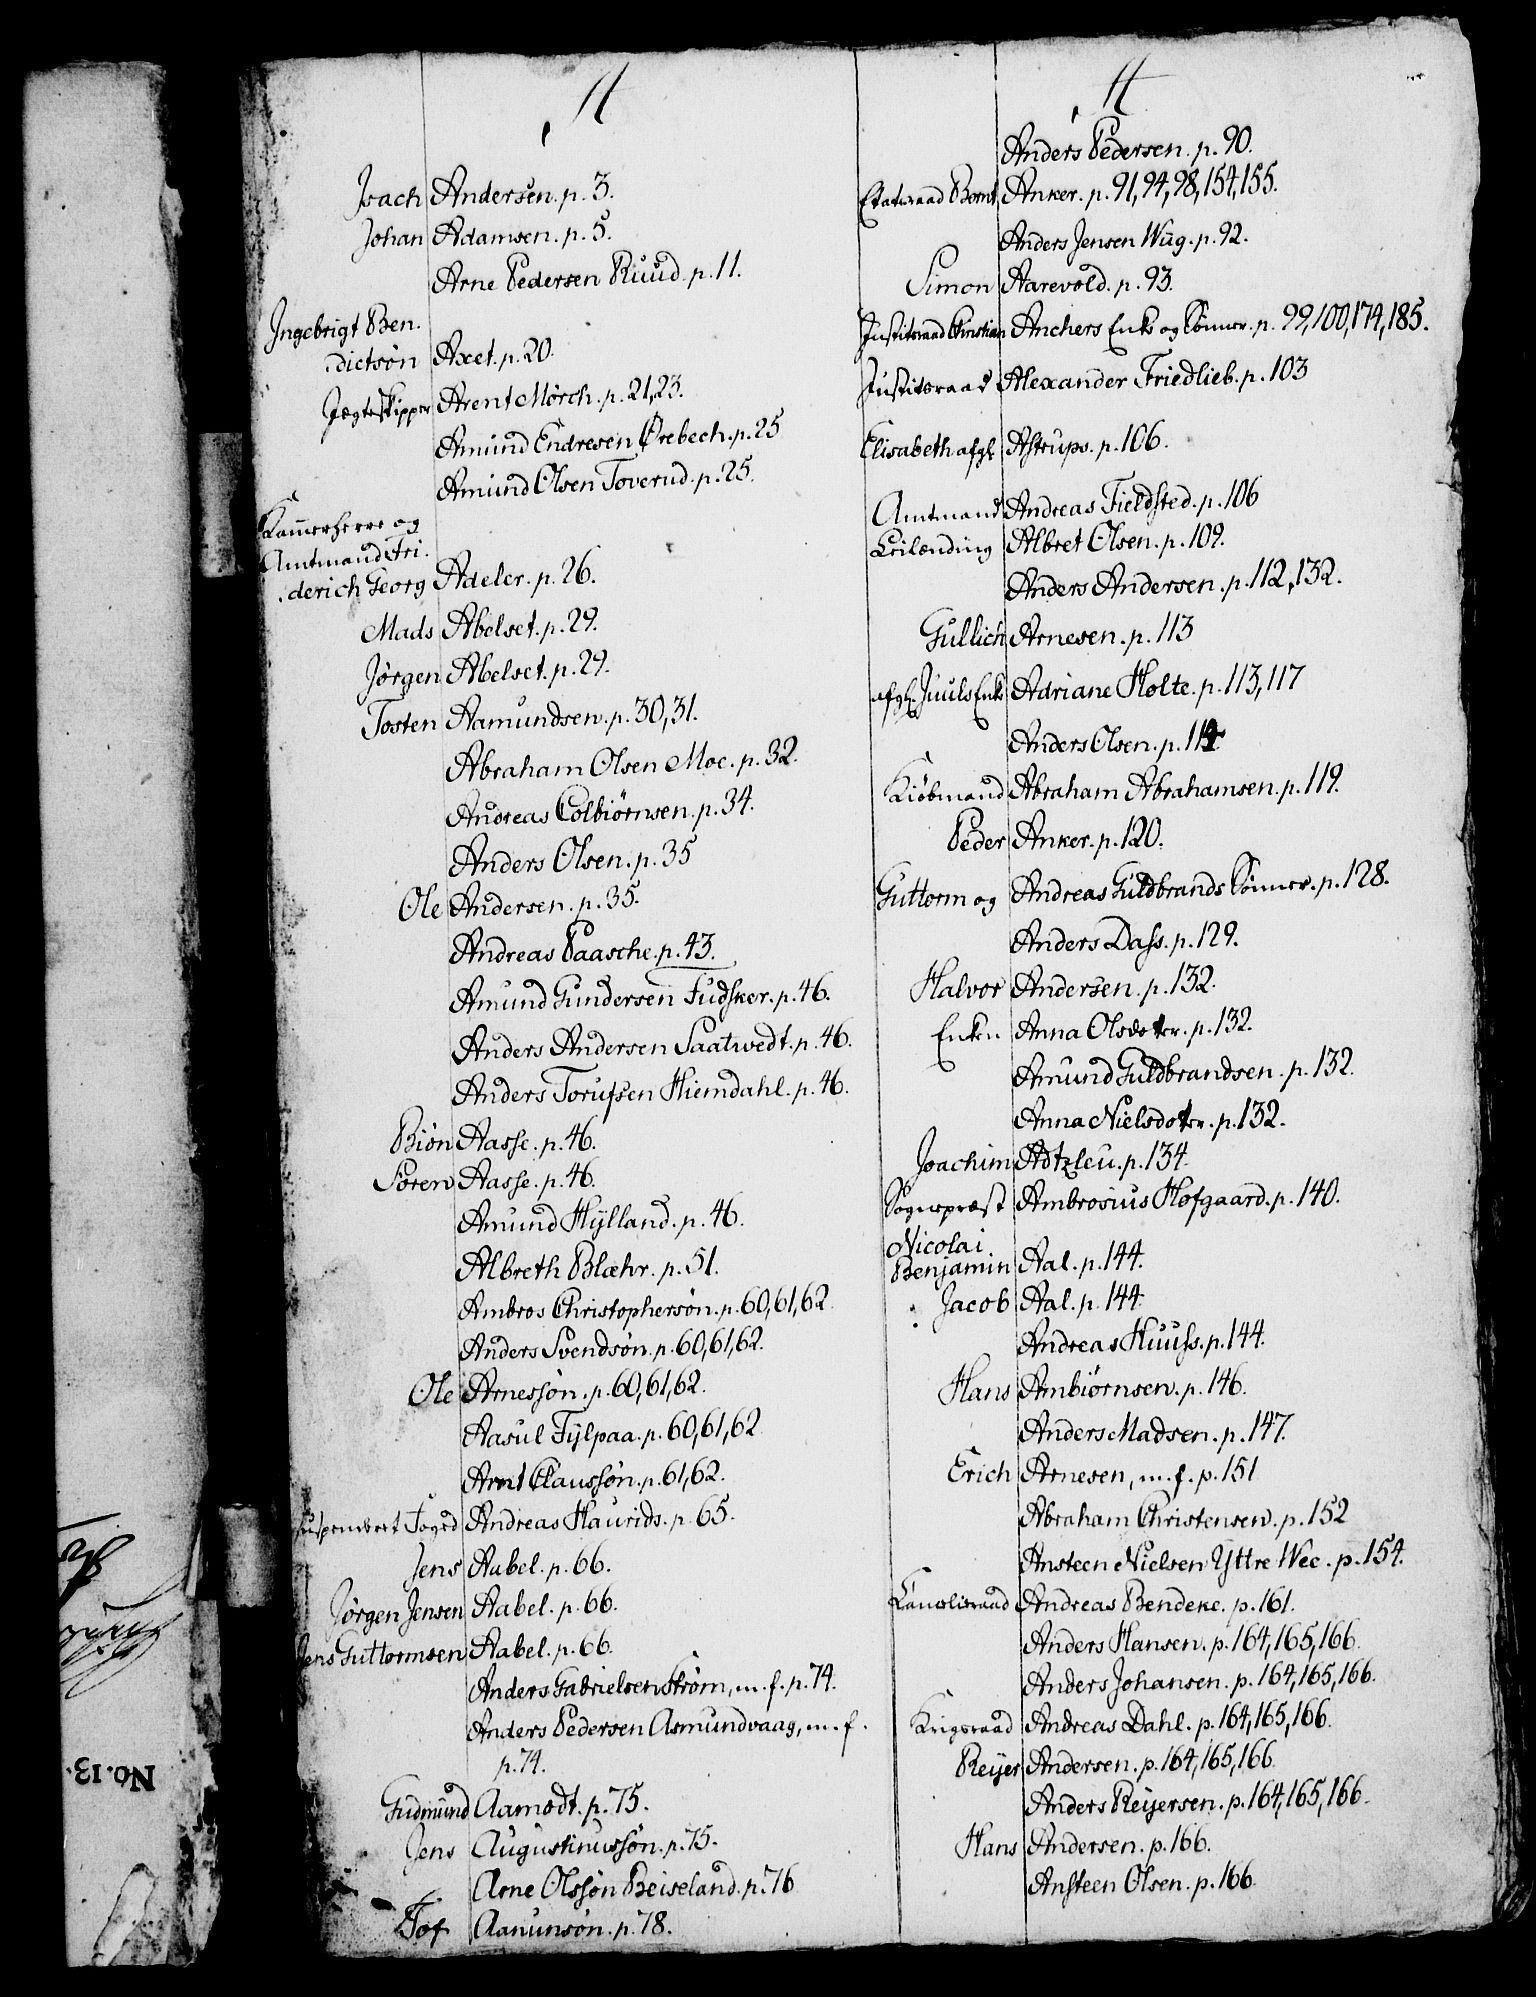 A
Isach Andersen. p. 3.
Johan Adamsen. p. 5.
Arne Pedersen Ruud. p. 11.
Ingebrigt Ben.
dictsøn Axet. p. 20.
Jægteskipper Arent Mørch. p. 21, 23.
Amund Endresen Ørebech. p. 25
Amund Olsen Toverud. p. 25.
Kam̄erherre og
Amtmand Fri.
derich Georg Adeler. p. 26.
Mads Abelset. p. 29.
Jørgen Abelset. p. 29.
Tosten Aamundsen. p. 30, 31.
Abraham Olsen Moe. p. 32.
Andreas Colbiørnsen. p. 34.
Anders Olsen. p. 35
Ole Andersen. p. 35.
Andreas Paasche. p. 43.
Amund Gundersen Fudsker. p. 46.
Anders Andersen Saatvedt. p. 46.
Anders Torufsen Hiemdahl. p. 46.
Biøn Aasse. p. 46.
Søren Aasse. p. 46.
Amund Hÿlland. p. 46.
Albreth Blæhr. p. 51.
Ambros Christophersøn. p. 60, 61, 62.
Anders Svendsøn. p. 60, 61, 62.
Ole Arnessøn. p. 60, 61, 62.
Aasul Fÿlpaa. p. 60, 61, 62
Arnt Claussøn. p. 61, 62.
suspenderet Foged Andreas Haurids. p. 65.
Jens Aabel. p. 66.
Jørgen Jensen Aabel. p. 66.
Jens Guttormsen Aabel. p. 66.
Anders Gabrielsen Strøm, m. f. p. 74.
Anders Pedersen Asmundvaag, m. f.
p. 74.
Gudmund Aamodt. p. 75.
Jens Augustinussøn. p. 75.
Arne Olssøn Beiseland. p. 76
Tof Aanunsøn. p. 78.
A
Anders Pedersen. p. 90.
Etatsraad Bernt Anker. p. 91, 94, 98, 154, 155.
Anders Jensen Wug. p. 92.
Simon Aarevold. p. 93.
Justitsraad Christian Anchers Enke og Sønner. p. 99, 100, 174, 185.
Justitsraad Alexander Friedlieb. p. 103
Elisabeth afgl. Astrups. p. 106.
Amtmand Andreas Fieldsted. p. 106
Leilænding Albret Olsen. p. 109.
Anders Andersen. p. 112, 132.
Gullich Arnesen. p. 113
afgl. Juuls Enke Adriane Holte. p. 113, 117
Anders Olsen. p. 114.
Kiøbmand Abraham Abrahamsen. p. 119.
Peder Anker. p. 120.
Guttorm og Andreas Guldbrands Sønner. p. 128.
Anders Dass. p. 129.
Halvor Andersen. p. 132.
Enken Anna Olsdotter. p. 132.
Amund Guldbrandsen. p. 132.
Anna Nielsdotter. p. 132.
Joachim Adtzleu. p. 134.
Sognepræst Ambrosius Hofgaard. p. 140.
Nicolai
Benjamin Aal. p. 144.
Jacob Aal. p. 144.
Andreas Huuss. p. 144.
Hans Ambiørnsen. p. 146.
Anders Madsen. p. 147.
Erich Arnesen, m. f. p. 151
Abraham Christensen. p. 152
Ansteen Nielsen Yttre Wee. p. 154.
Cancelieraad Andreas Bendeke. p. 161.
Anders Hansen. p. 164, 165, 166.
Anders Johansen. p. 164, 165, 166.
Krigsraad Andreas Dahl. p. 164, 165, 166.
Reÿer Andersen. p. 164, 165, 166.
Anders Reÿersen. p. 164, 165, 166.
Hans Andersen. p. 166.
Ansteen Olsen. p. 166.
No. 13.